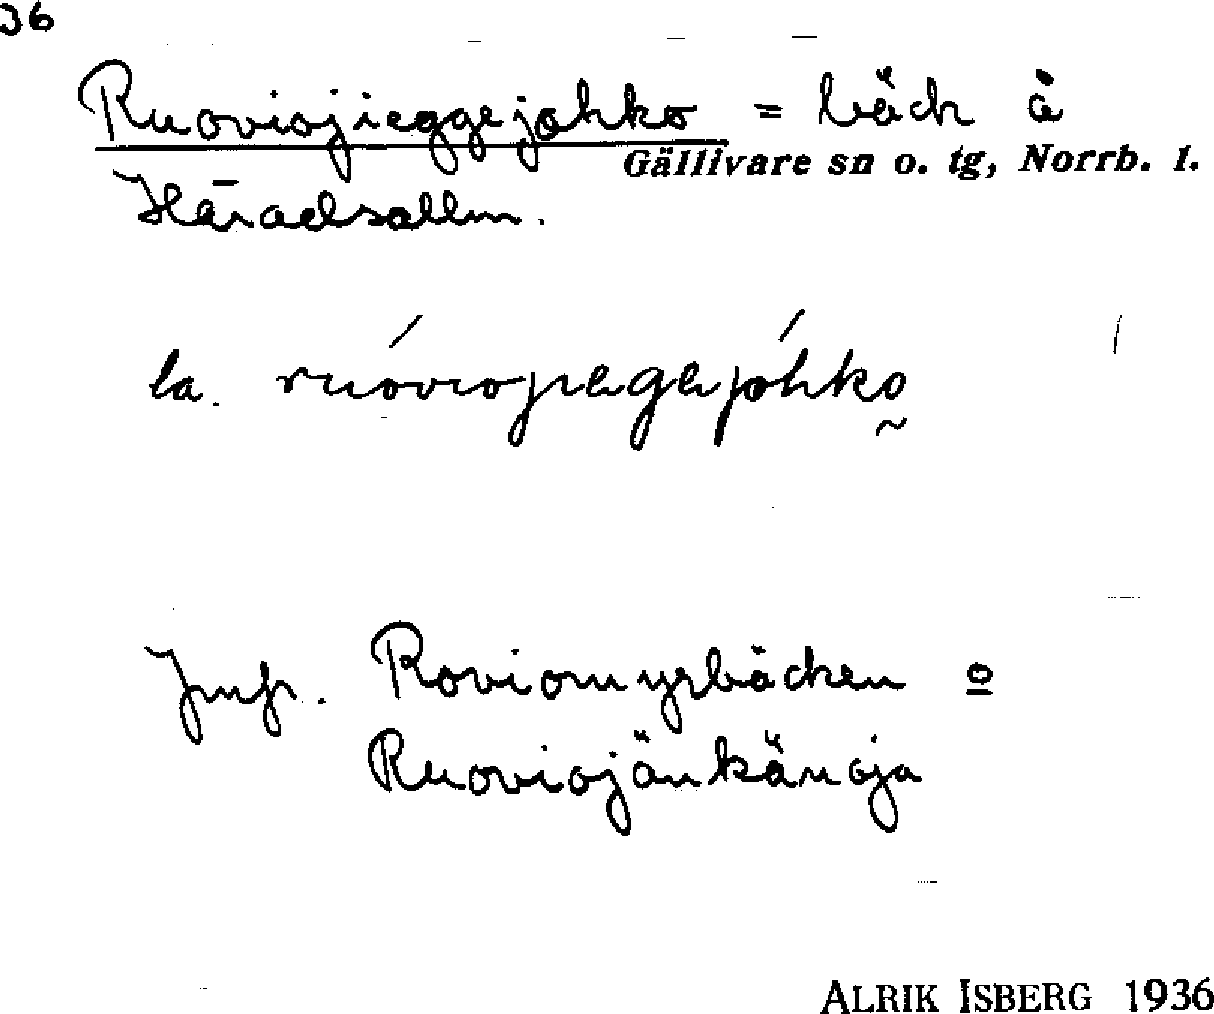 36
Ruoviojieggejohko = bäck å
Gällivare sn o. tg, Norrb. l.
Häradsallm.
la. ruóviojiegejóhko
Jmfr. Roviomyrbäcken o
Ruoviojänkänoja
ALRIK ISBERG 1936